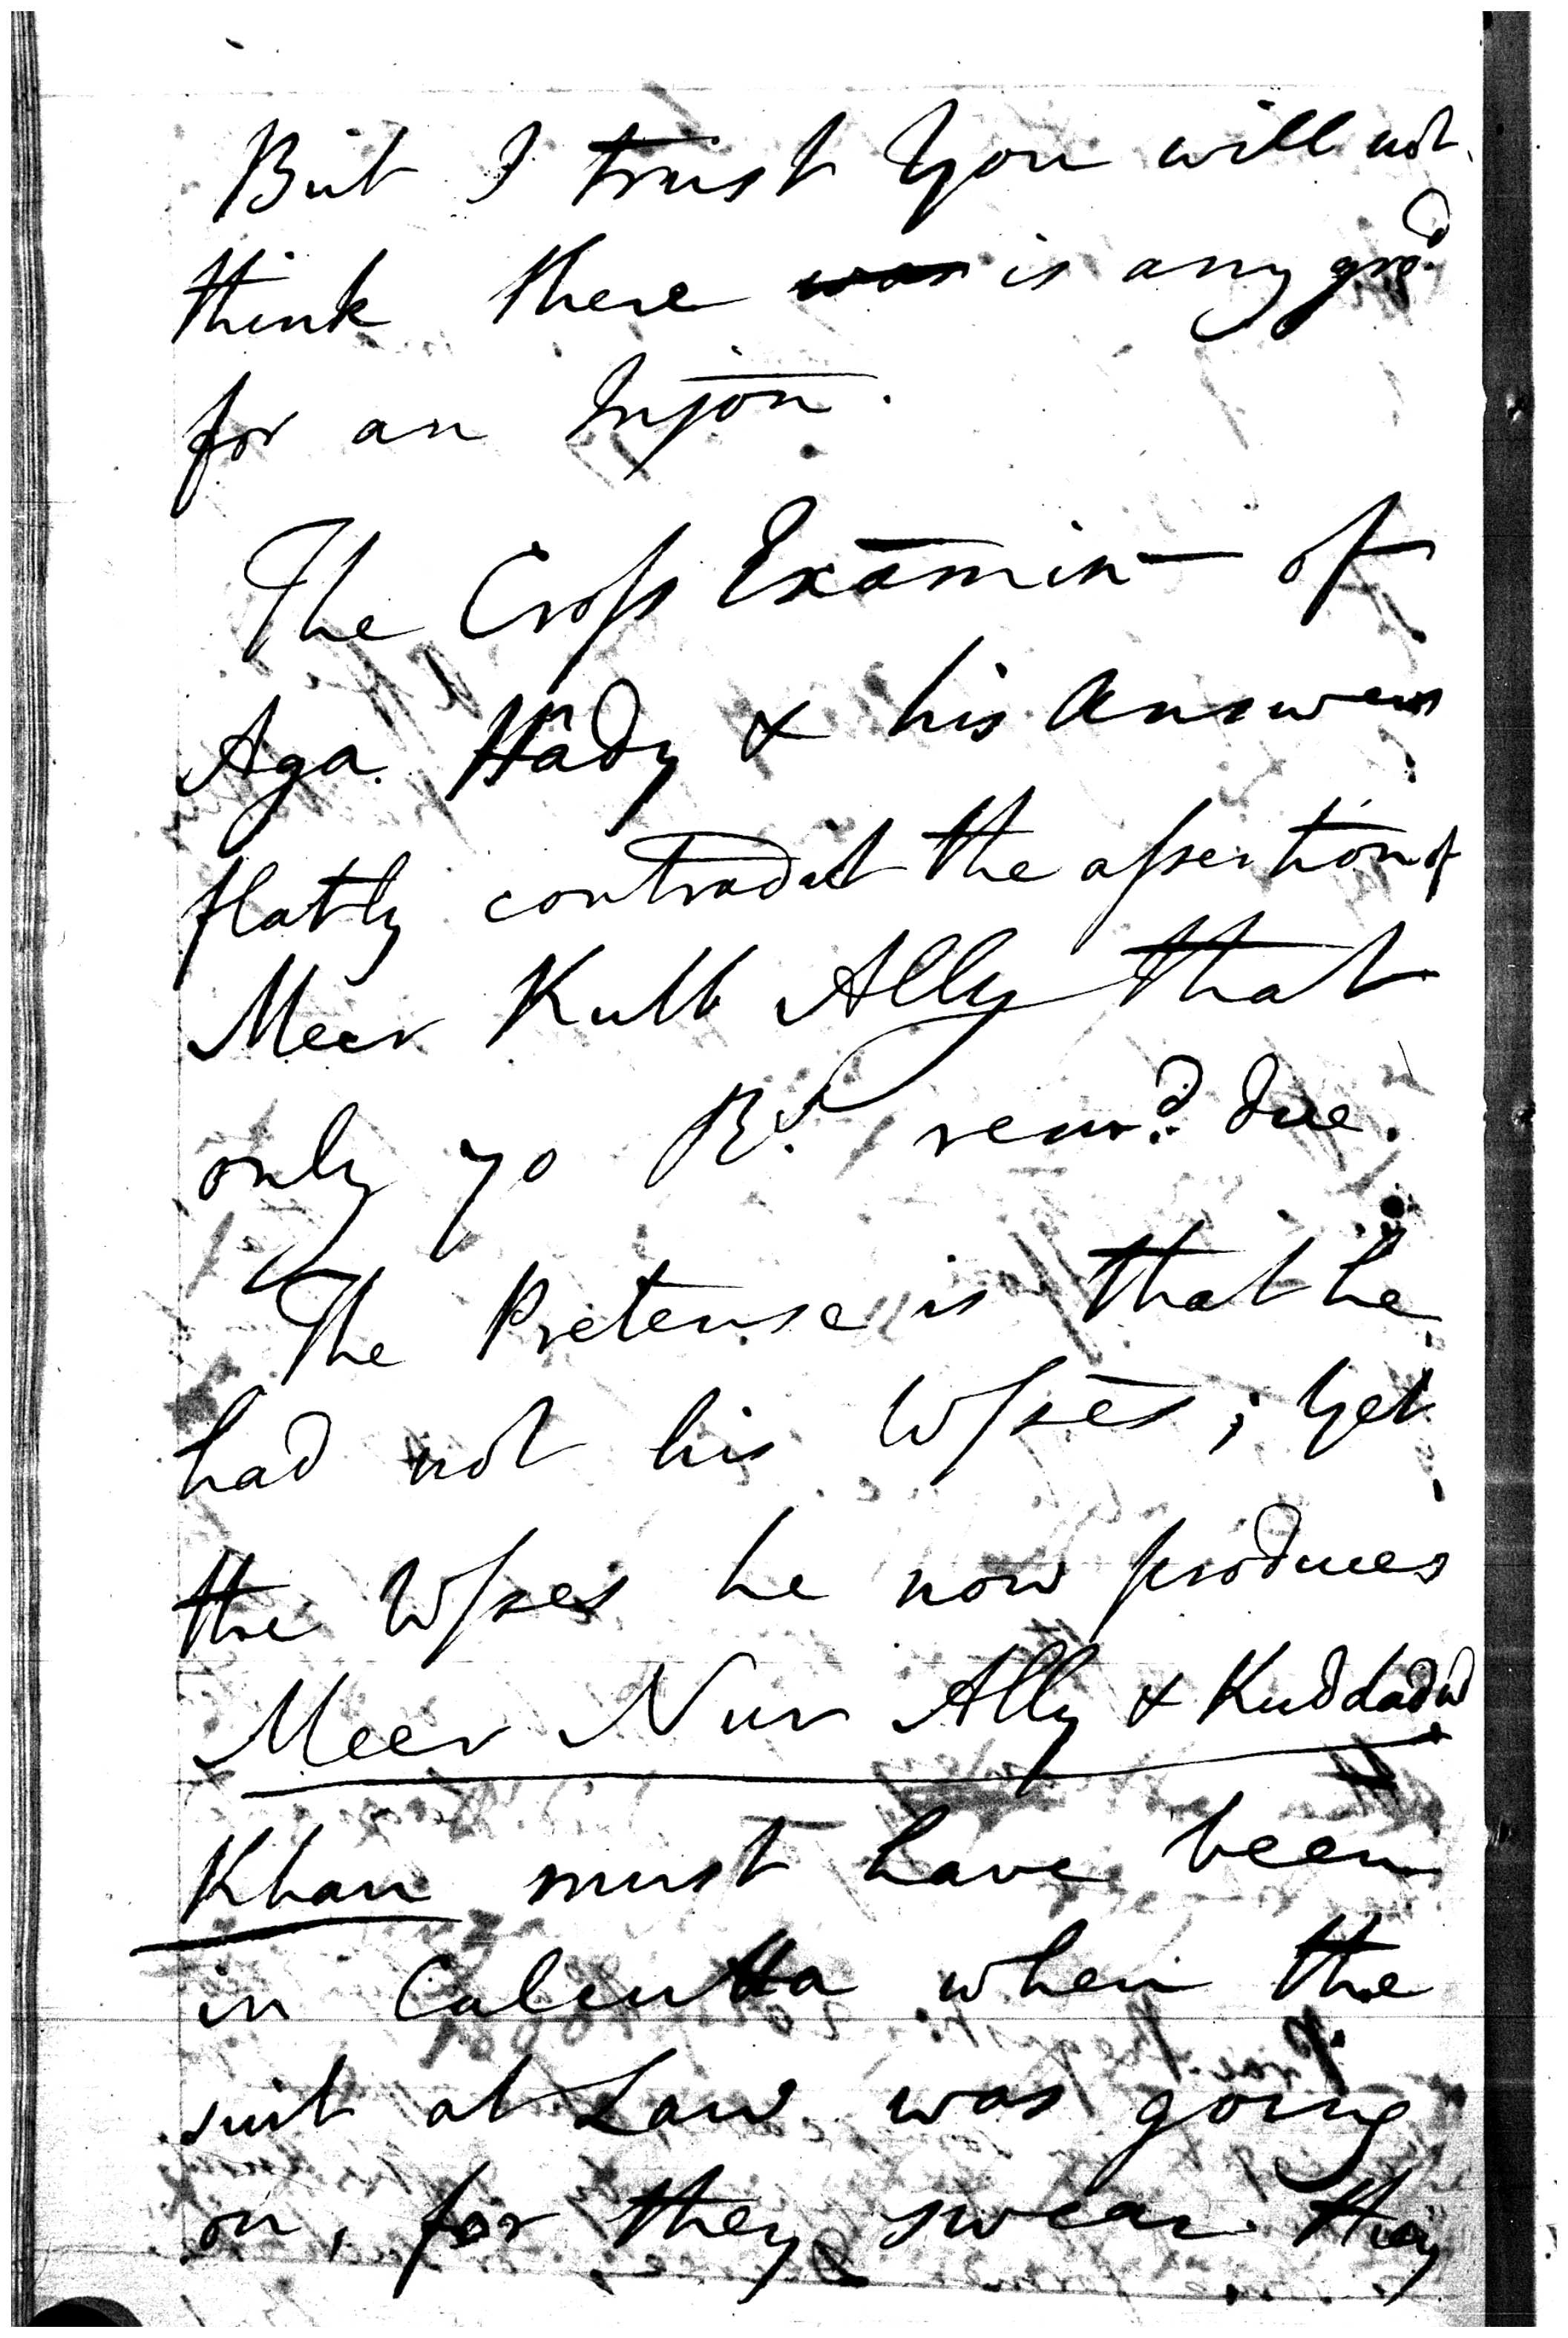 But I trust You will not
think there ~~was~~ is any gro.d
for an Injōn.
The Cross Examin— of
Aga Hady & his Answers
flatly contradict the assertion of
Meer Kulb Ally that
only 70 Rs. remd. due.
The Pretense is that he
had not his Wsses; Yet
the Wsses he now produces
Meer Nur Ally & Kuddadad
Khan must have been
in Calcutta when the
suit at Law was going
on, for they swear they